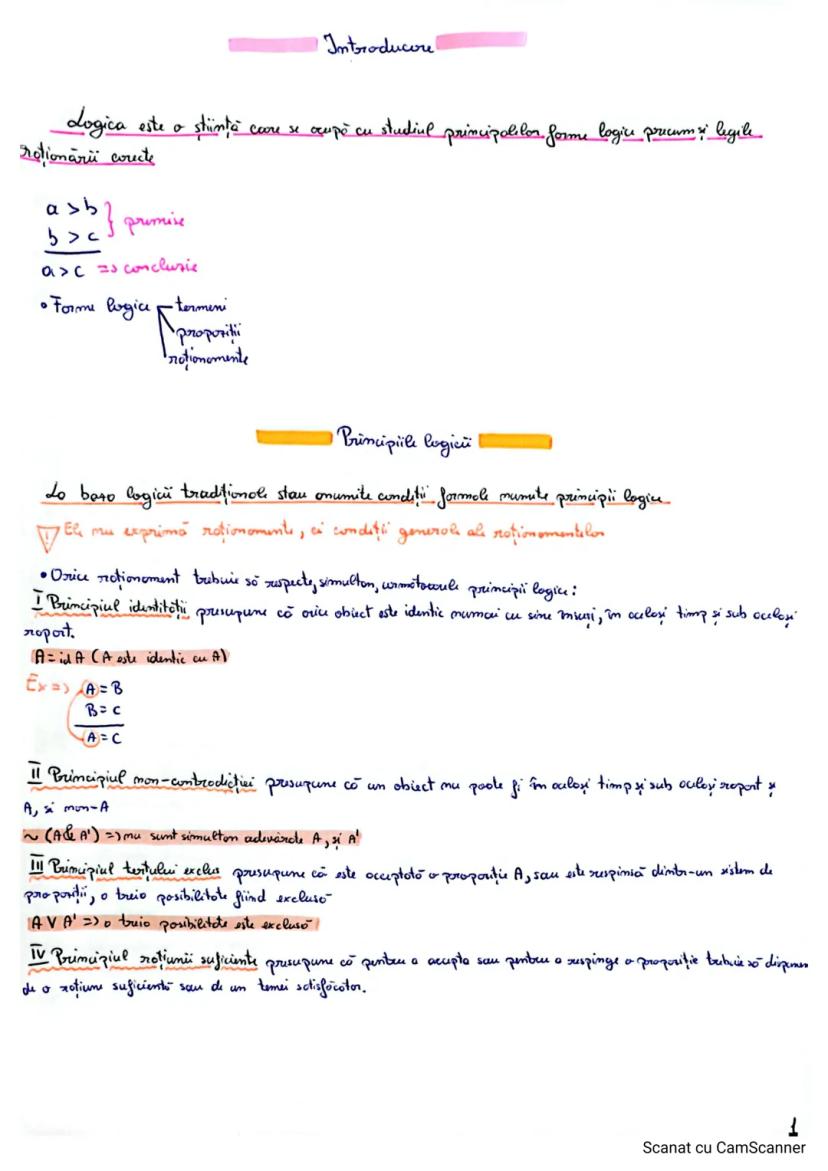 Introducere
Logica este o știință care se ocupă cu studiul principalelor forme logice precum și legile
raționării corecte
a > b
b > c } premise
a > c => concluzie
• Forme logice termeni
propoziții
raționamente
Principiile logicii
La baza logicii tradiționale stau anumite condiții formale numite principii logice
! Ele nu exprimă raționamente, ci condiții generale ale raționamentelor
• Orice raționament trebuie să respecte, simultan, următoarele principii logice:
I Principiul identității presupune că orice obiect este identic numai cu sine însuși, în același timp și sub același
raport.
A = id A (A este identic cu A)
Ex => A = B
B = C
A = C
II Principiul non-contradicției presupune că un obiect nu poate fi în același timp și sub același raport și
A, și non-A
~ (A & A') => nu sunt simultan adevărate A, și A'
III Principiul terțului exclus presupune că este acceptată o propoziție A, sau este respinsă dintr-un sistem de
propoziții, o treia posibilitate fiind exclusă
A V A' => o treia posibilitate este exclusă
IV Principiul rațiunii suficiente presupune că pentru a accepta sau pentru a respinge o propoziție trebuie să dispunem
de o rațiune suficientă sau de un temei satisfăcător.
1
Scanat cu CamScanner